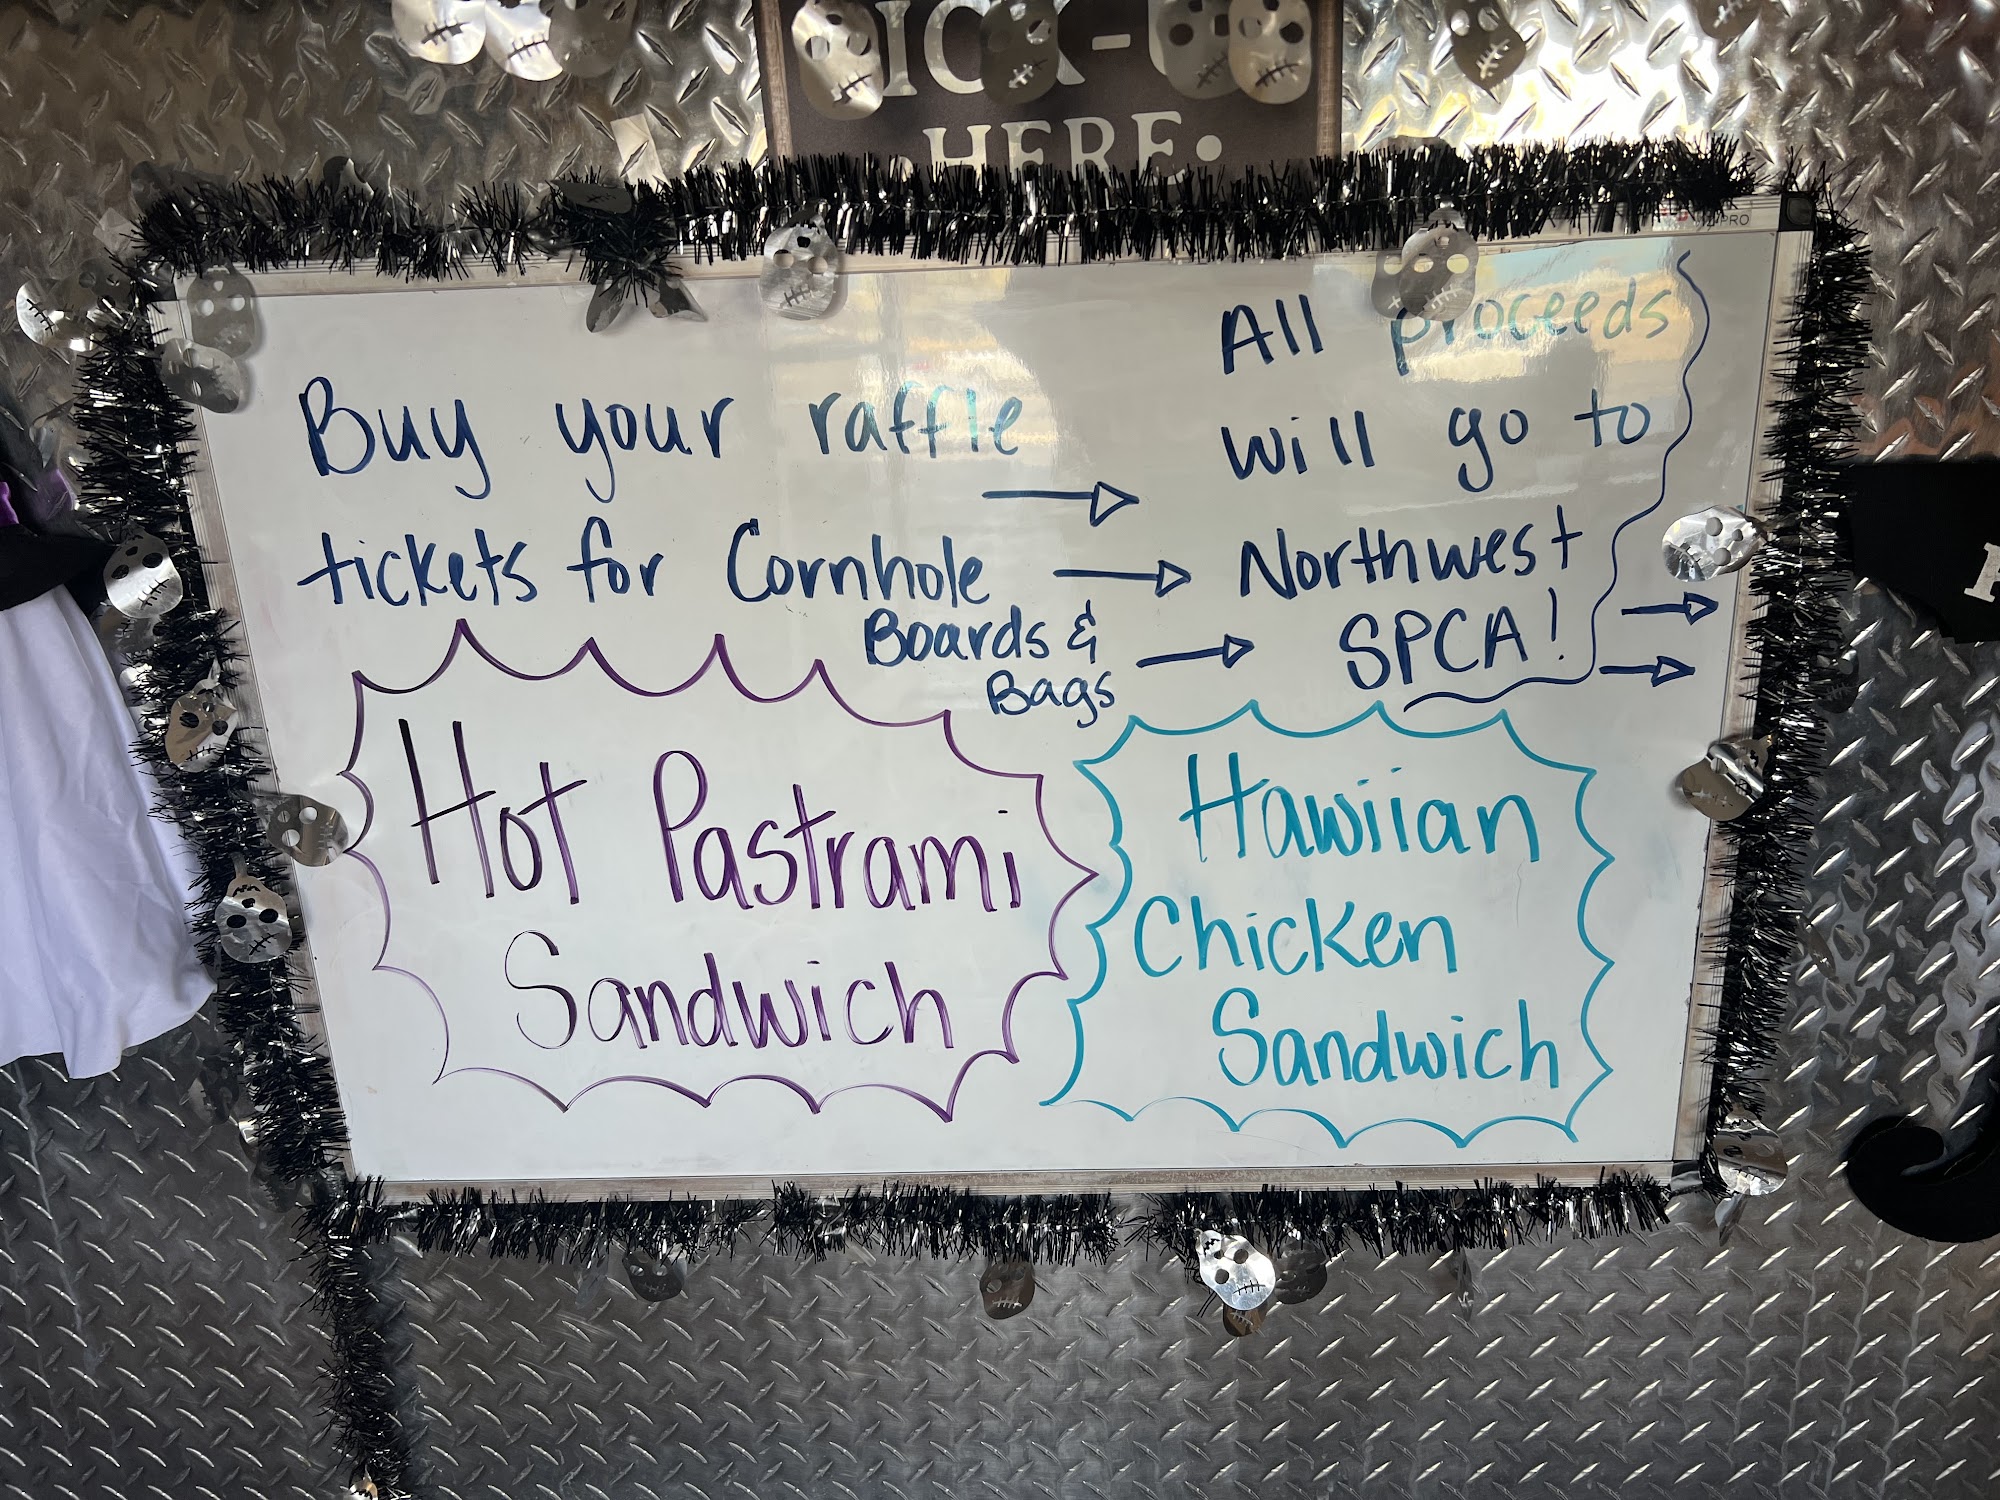 HERE
Buy your raffle
tickets for Cornhole
Boards &
Bags
All proceeds
will go to
Northwest
SPCA!
Hot Pastrami
Sandwich
Hawiian
Chicken
Sandwich